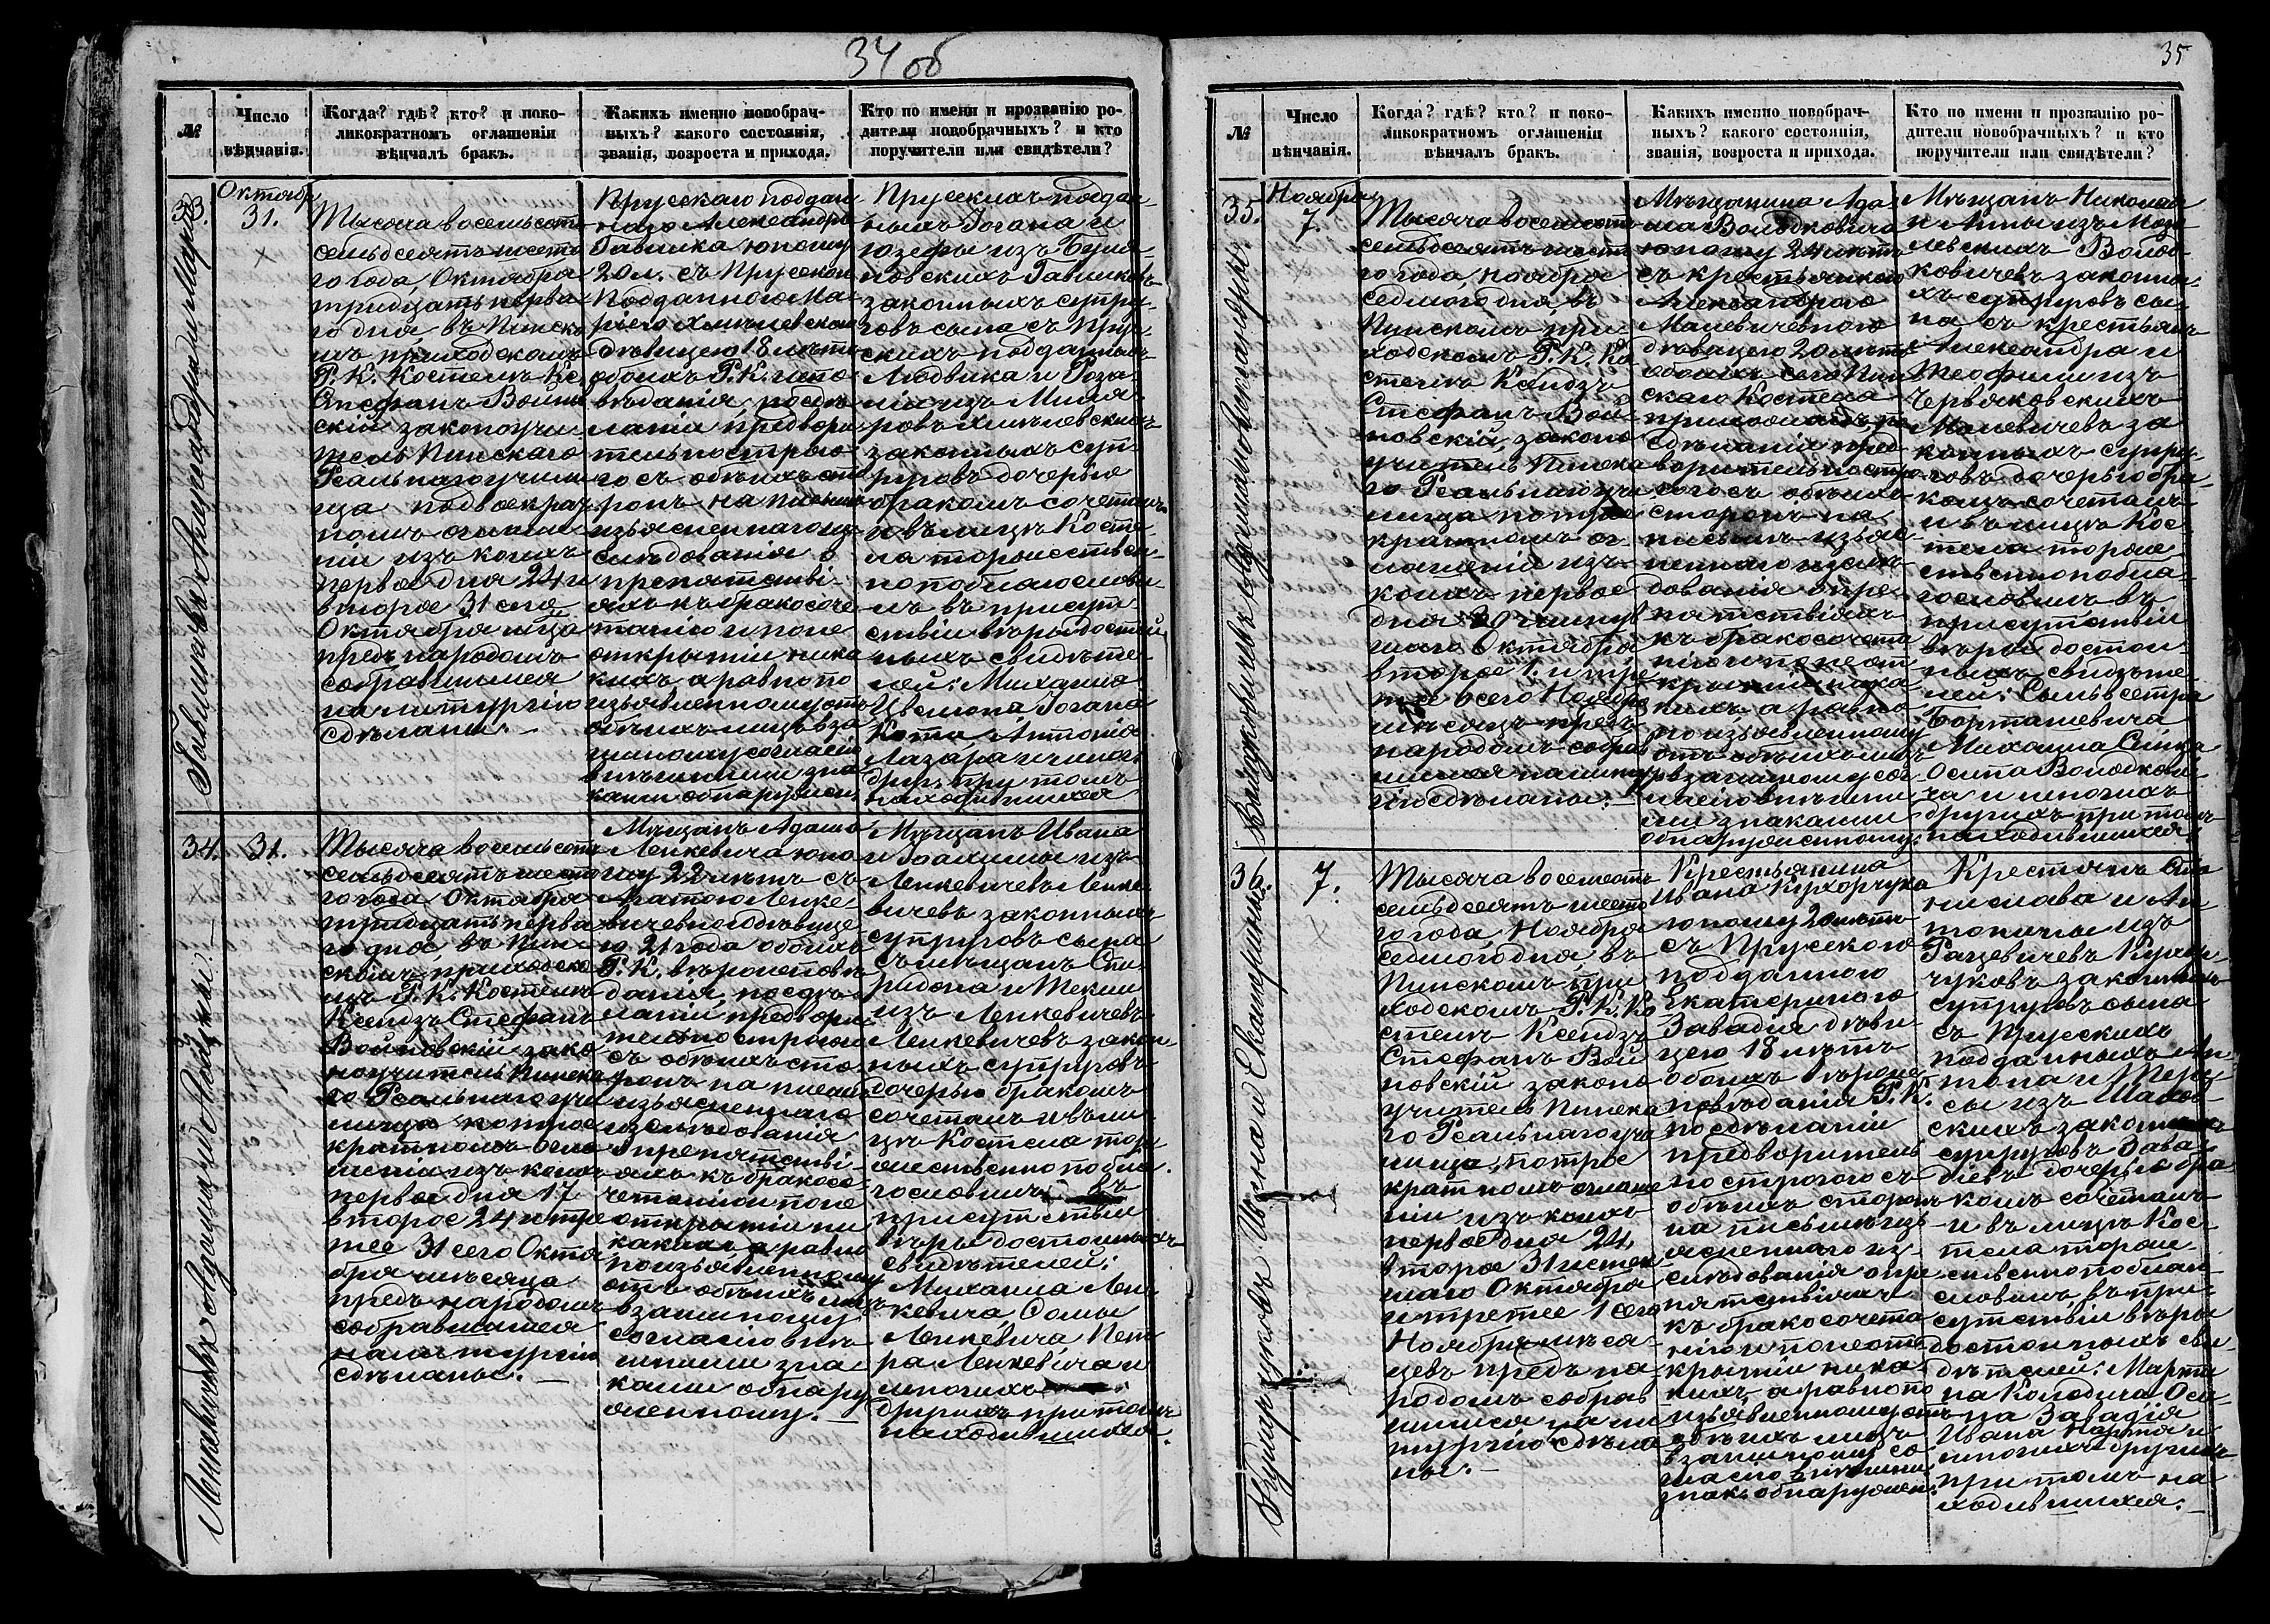 34 об
№
Число
вѣнчанія.
Когда? гдѣ? кто? и поко-
ликократномъ оглашеніи
вѣнчалъ бракъ.
Какихъ именно новобрач-
ныхъ? какого состоянія,
званія, возроста и прихода.
Кто по имени и прозванію ро-
дители новобрачныхъ? и кто
поручители или свидѣтели?
33.
Октября
31.
Тысяча восемьсотъ
семьдесятъ шесто
го года, Октября
тридцать перва
го дня, въ Пинско
мъ приходскомъ
Р. К. Костелѣ Кс.
Стефанъ Войнов
скій законоучи
тель Пинскаго
Реальнаго учили
ща по двоекрат
номъ оглаше
ніи изъ коихъ
первое дня 24 и
второе 31 сего
Октября м-ца
предъ народомъ
собравшимся
на литургію
сдѣланы.
Прусскаго поддан
наго Александра
Гавлика юношу
20 л. съ Прусскою
Подданною Ма-
ріею Хмѣлевскою
дѣвицею 18 лѣтъ
обоихъ Р. К. испо
вѣданія, по сдѣ
ланіи предвори
тельно строго
го съ обѣихъ сто
ронъ на письмѣ
изъясненнаго из
слѣдованія о
препятстві-
яхъ къ бракосоче
танію и по не
открытіи ника
кихъ а равно по
изъявленному отъ
обѣихъ лицъ вза
имному согласію
внѣшними зна
ками обнаружен.
Прусскихъ поддан
ныхъ Іогана и
Юзефы изъ
Гавликовъ
законныхъ супру-
говъ сына съ Прус
скихъ подданныхъ
Людвика и Роза-
ліи изъ
Хмѣлевскихъ
законныхъ суп-
руговъ дочерью
бракомъ сочеталъ
и въ лицѣ Косте
ла торжествен-
но поблагослови-
лъ въ присут
ствіи вѣры достой
ныхъ свидѣте
лей: Михаила
Іогана
Антонія
Лазара и многи
друг. при томъ
находившихся
34.
31.
Тысяча восемьсотъ
семьдесятъ шесто
го года Октября
тридцать перва
го дня, въ Пин-
скомъ приходско
мъ Р. К. Костелѣ
Ксендзъ Стефанъ
Войновскій зако
ноучитель Пинска
го Реальнаго учи
лища по трое
кратномъ огла
шеніи изъ коихъ
первое дня 17
второе 24 и тре
тее 31 сего Октя
бря мѣсяца
предъ народомъ
собравшимся
на литургію
сдѣланы.
Мѣщанъ Адама
Ленкевича юно
шу 22 лѣтъ съ
Агатою Ленке
вичевною дѣвице
ю 21 года обоихъ
Р. К. вѣроисповѣ
данія, по сдѣ-
ланіи предвори
тельно строгаго
съ обѣихъ сто
ронъ на письмѣ
изъясненнаго
изслѣдованія
о препятстві-
яхъ къ бракосо
четанію и по не
открытіи ни
какихъ, а равно
по изъявленному
отъ обѣихъ лицъ
взаимному
согласію внѣ
шними зна
ками обнару
женному.
Мѣщанъ Ивана
и Іоахимы изъ
Ленкевичевъ Ленке
вичевъ законныхъ
супруговъ сына
съ мѣщанъ Спи
ридона и Теклии
изъ Ленкевичевъ
Ленкевичевъ закон
ныхъ супруговъ
дочерью бракомъ
сочеталъ и въ ли
цѣ Костела тор
жественно побла
гословилъ въ
присутствіи
вѣры достойныхъ
свидѣтелей:
Михаила Лен
кевича, Томы
Ленкевича, Пет
ра Ленкевича и
многихъ
другихъ при томъ
находившихся.
Гавликовъ Александра и Маріи.
Ленкевичевъ Адама и Агаты.
35
№
Число
вѣнчанія.
Когда? гдѣ? кто? и поко-
ликократномъ оглашеніи
вѣнчалъ бракъ.
Какихъ именно новобрач-
ныхъ? какого состоянія,
званія, возроста и прихода.
Кто по имени и прозванію ро-
дители новобрачныхъ? и кто
поручители или свидѣтели?
35.
Ноября
7.
Тысяча восемьсотъ
семьдесятъ шест
го года, Ноября
седмого дня, въ
Пинскомъ при-
ходскомъ Р. К. Ко
стелѣ Ксендзъ
Стефанъ Вой
новскій, законо
учитель Пинска
го Реальнаго учи
лища по трое
кратномъ ог-
лашеніи изъ
коихъ первое
дня минув
шаго Октября
второе 1. и тре
тее сего Ноября
мѣсяцъ предъ
народомъ собрав
шимся на литур
гію сдѣланы.
Мѣщанина Ада
ма Володковича
юношу 24 лѣтъ
съ крестьянкою
Александрою
Малевичевною
дѣвицею 20 лѣтъ
обоихъ сего Пин
скаго Костела
прихожанъ, по
сдѣланіи пред
варительно стро
гаго съ обѣихъ
сторонъ на
письмѣ изъяс-
неннаго изслѣ
дованія о пре-
пятствіяхъ
къ бракосочета
нію и по не от
крытіи ника
кихъ, а равно
по изъявленному
отъ обѣихъ лицъ
взаимному сог
ласію внѣшни
ми знаками
обнаруженному.
Мѣщанъ Николая
и Анны изъ
Волод-
ковичевъ законны
хъ супруговъ сы-
на съ крестьянъ
Александра и
Теофили изъ
Червяковскихъ
Малевичевъ за
конныхъ супру-
говъ дочерью бра
комъ сочеталъ
и въ лицѣ Кос-
тела торже
ственно побла
гословилъ въ
присутствіи
вѣры достой-
ныхъ свидѣте
лей: Сильвестра
Борташевича
Михаила
Осипа Володкови
ча и многихъ
другихъ при томъ
находившихся
36.
7.
Тысяча восемьсотъ
семьдесятъ шесто
го года, Ноября
седмого дня, въ
Пинскомъ при
ходскомъ Р. К. Ко
стелѣ Ксендзъ
Стефанъ Вой
новскій законо
учитель Пинска
го Реальнаго учи
лища, по трое
кратномъ оглаше
ніи изъ коихъ
первое дня 24,
второе 31 истек
шаго Октября
и третее 1 сего
Ноября мѣся-
цевъ предъ на
родомъ собрав
шимся на ли
тургію сдѣла
ны.
Крестьянина
Ивана Кухарчука
юношу 20 лѣтъ
съ Прусскою
подданною
Екатериною
Завадія дѣви
цею 18 лѣтъ
обоихъ вѣроис
повѣданія Р. К.
по сдѣланіи
предворитель
но строгого съ
обѣихъ сторонъ
на письмѣ изъ
ясненнаго из-
слѣдованія о пре
пятствіяхъ
къ бракосочета
нію и по не от
крытіи ника
кихъ а равно по
изъявленному отъ
обѣихъ лицъ
взаимному со
гласію внѣшни
знак. обнаружен.
Крестьянъ Ста
нислава и Ан
тонины изъ
Рацевичевъ Кухар
чуковъ законныхъ
супруговъ сына
съ Прусскихъ
подданныхъ Ан
тона и Тере
сы изъ
законныхъ
супруговъ Зава
діевъ дочерью бра
комъ сочеталъ
и въ лицѣ Кос-
тела торже-
ственно поблаго
словилъ, въ при
сутствіи вѣры
достойныхъ сви
дѣтелей: Марти
на Колодича Оси
па Завадія
Ивана и
многихъ другихъ
при томъ на
ходившихся.
Володковичевъ Адама и Александры.
Кухарчуковъ Ивана и Екатерины.